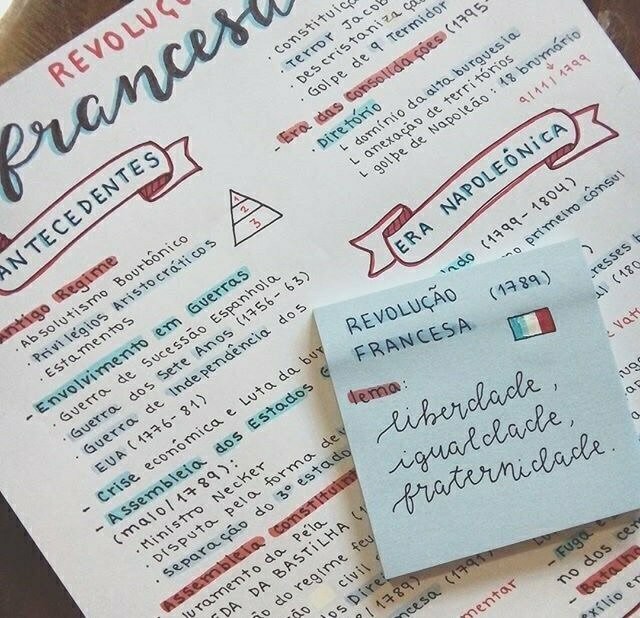 REVOLUÇ
francesa
ANTECEDENTES
1
2
3
Antigo Regime
· Absolutismo Bourbônico
Privilégios Aristocráticos
· Estamentos
- Envolvimento em Guerras
· Guerra de Sucessão Espanhola
· Guerra dos Sete Anos (1756-63)
Guerra de Independência dos
EUA (1776-81)
- Crise econômica e Luta da bur
- Assembleia dos Estados G
(maio/1789):
· Ministro Necker
· Disputa pela forma de
separação do 3º estado
Assembleia Constituin
Juramento da Péla
EDA DA BASTILHA (1
ão do regime feu
civil
dos Dire
/1789)
cesa (1791
Constituiç
Terror Jacob
· Descristianização
· Golpe de 9 Termidor
- Era das Consolidações (1795-
Diretório
↳ domínio da alta burguesia
↳ anexação de territórios
↳ golpe de Napoleão: 18 brumário
9/11/1799
ERA NAPOLEÔNICA
lado (1799-1804)
mo primeiro cônsul
resses b
(180
REVOLUÇÃO (1789)
FRANCESA
lema:
liberdade,
igualdade,
fraternidade.
mentar
- Fuga
no dos ce
- Batalh
exílio e